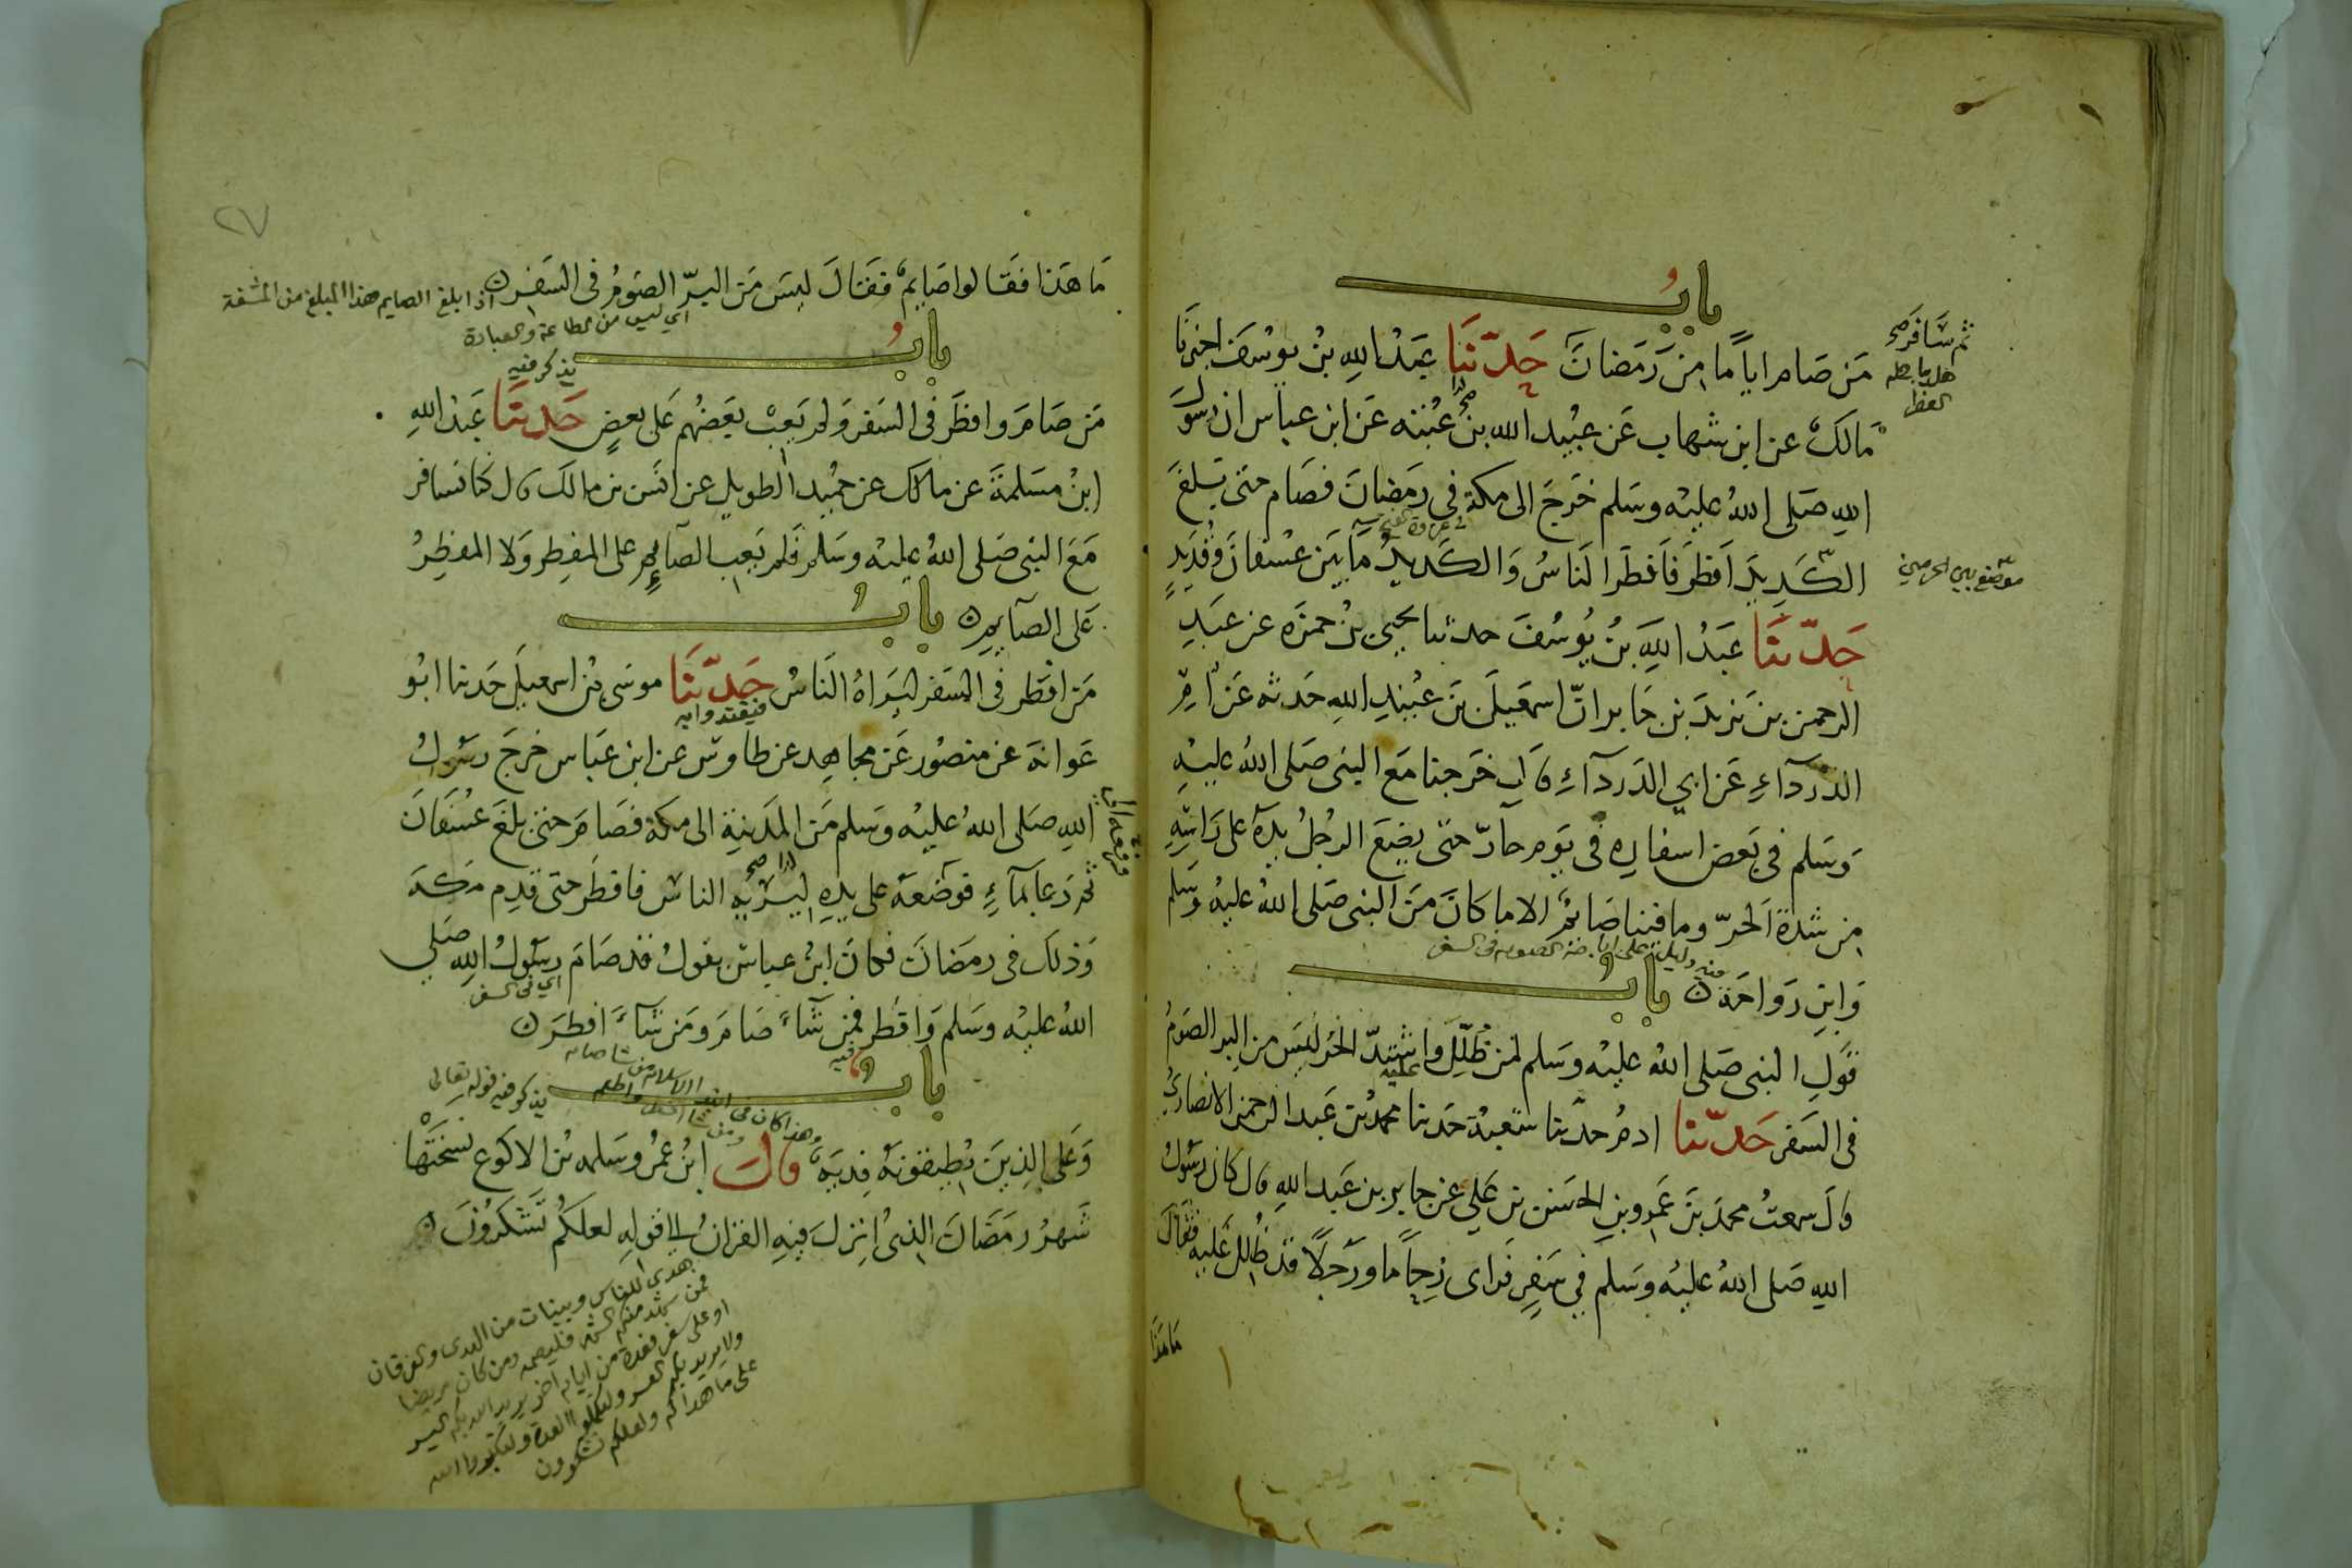 باب
من صام اياما من رمضان حدثنا عبد الله بن يوسف اخبرنا
ثم سافر صح
هل يباح له
الفطر
مالك عن ابن شهاب عن عبيد الله بن عبد الله بن عتبة عن ابن عباس ان رسول
الله صلى الله عليه وسلم خرج الى مكة في رمضان فصام حتى بلغ
في غزوة الفتح
الكَدِيدَ اَفطَرَ فَاَفطَرَ الناسُ وَالكَدِيدُ مَا بَين عُسْفانَ وَقُدَيدٍ
موضع بين الحرمين
حَدّثنَا عَبْدُ اللهِ بنُ يُوسُفَ حدثنا يحيى بنُ حمزَه عن عَبدِ
الرحمن بن يزيدَ بن جَابر انّ اسمعيلَ بنَ عُبَيدِ اللهِ حَدثه عَن اُمِّ
الدَّردآءِ عَن ابي الدَردآءِ قال خَرَجنا مَع النبى صَلى اللهُ عليهِ
وَسَلم فى بَعض اسفارِه فى يَومٍ حآرّ حتى يضَعَ الرجُلُ يدَهُ على رَاسِهِ
من شدةِ الحرّ وما فينا صَائمٌ الا ما كانَ مِنَ النبى صَلى اللهُ عليهُ وسَلم
فيه دليل على اباحة الصوم فى السفر
وَابنِ رَوَاحَةَ ن باب
قَولِ النبى صَلى اللهُ عليْه وَسَلم لمن ظُلِّلَ عليه واشتدّ الحرُ ليسَ من البر الصَومُ
فى السَفر حَدّثنا ادمُ حدّثنا شعبةُ حَدثنا محمدُ بن عَبد الرحمن الانصاريُّ
قالَ سمعتُ محمدَ بنَ عَمرِو بنِ الحسَن بنِ عَلي عن جابر بن عَبد اللهِ قال كان رسُولُ
اللهِ صَلى اللهُ عليْه وَسَلم فِي سَفرٍ فَراى زِحاماً ورَجلاً قد ظُلِلَ عَليه فَقالَ
مَا هَذَا
٢٧
مَا هَذا فقالوا صَايمٌ فقَالَ ليسَ مَن البرّ الصَومُ فى السَفرِ ن
اذا بلغ الصايم هذا المبلغ من المشقة
اي ليس من الطاعة والعبادة
بابُ
يذكر فيه
مَن صَامَ وافطَر فى السَفر وَلم يَعِبْ بَعضُهم عَلى بعضٍ حَدثنا عَبدُ اللهِ
ابنُ مسَلمةَ عن مالك عن حميد الطويلِ عن انَس بن مالك قال كنا نسافر
مَعَ النبى صَلى اللهُ عليْه وسَلم فَلم يَعِب الصآئم على المفطِرِ وَلا المفطِرُ
عَلى الصآيمِ ن بابُ
مَن افطر فى السَفر ليَراهُ الناسُ حَدّثنَا موسَى بنُ اسمعيلَ حَدثنا ابُو
فيقتدوا به
عَوانةَ عن منصُور عَن مجاهِد عن طاوسٍ عن ابن عَباس خرجَ رسُولُ
اللهِ صَلى اللهُ عليْه وَسَلم مَن المَدينةِ الى مكة فصَامَ حتى بلغَ عُسْفَانَ
ثم دَعا بمآءٍ فوَضعَهُ على يدِهِ ليُريَه الناسَ فافطَر حتى قَدِم مكةَ
وَذلك فى رمضانَ فكانَ ابنُ عباسٍ يقولُ قد صَامَ رسُولُ اللهِ صَلى
اي فى السفر
اللهُ عليْه وسَلم وَافطر فمن شآءَ صَامَ ومَن شآءَ افطَرَ ن
باب
يذكر فيه قوله تعالى
وَعَلى الذِينَ يُطيقونَهُ فِديَةٌ قالَ ابنُ عمرُ وسَلمه بنُ الاكوع نسَخَتْهَا
شَهرُ رمَضَانَ الذىُ انزِلَ فيهِ القرانُ الى قولِهِ لعلكُم تَشكرُونَ ن
هدى للناس وبينات من الهدى والفرقان
فمن شهد منكم الشهر فليصمه ومن كان مريضا
او على سفر فعدة من ايام اخر يريد الله بكم اليسر
ولا يريد بكم العسر ولتكملوا العدة ولتكبروا الله
على ما هداكم ولعلكم تشكرون